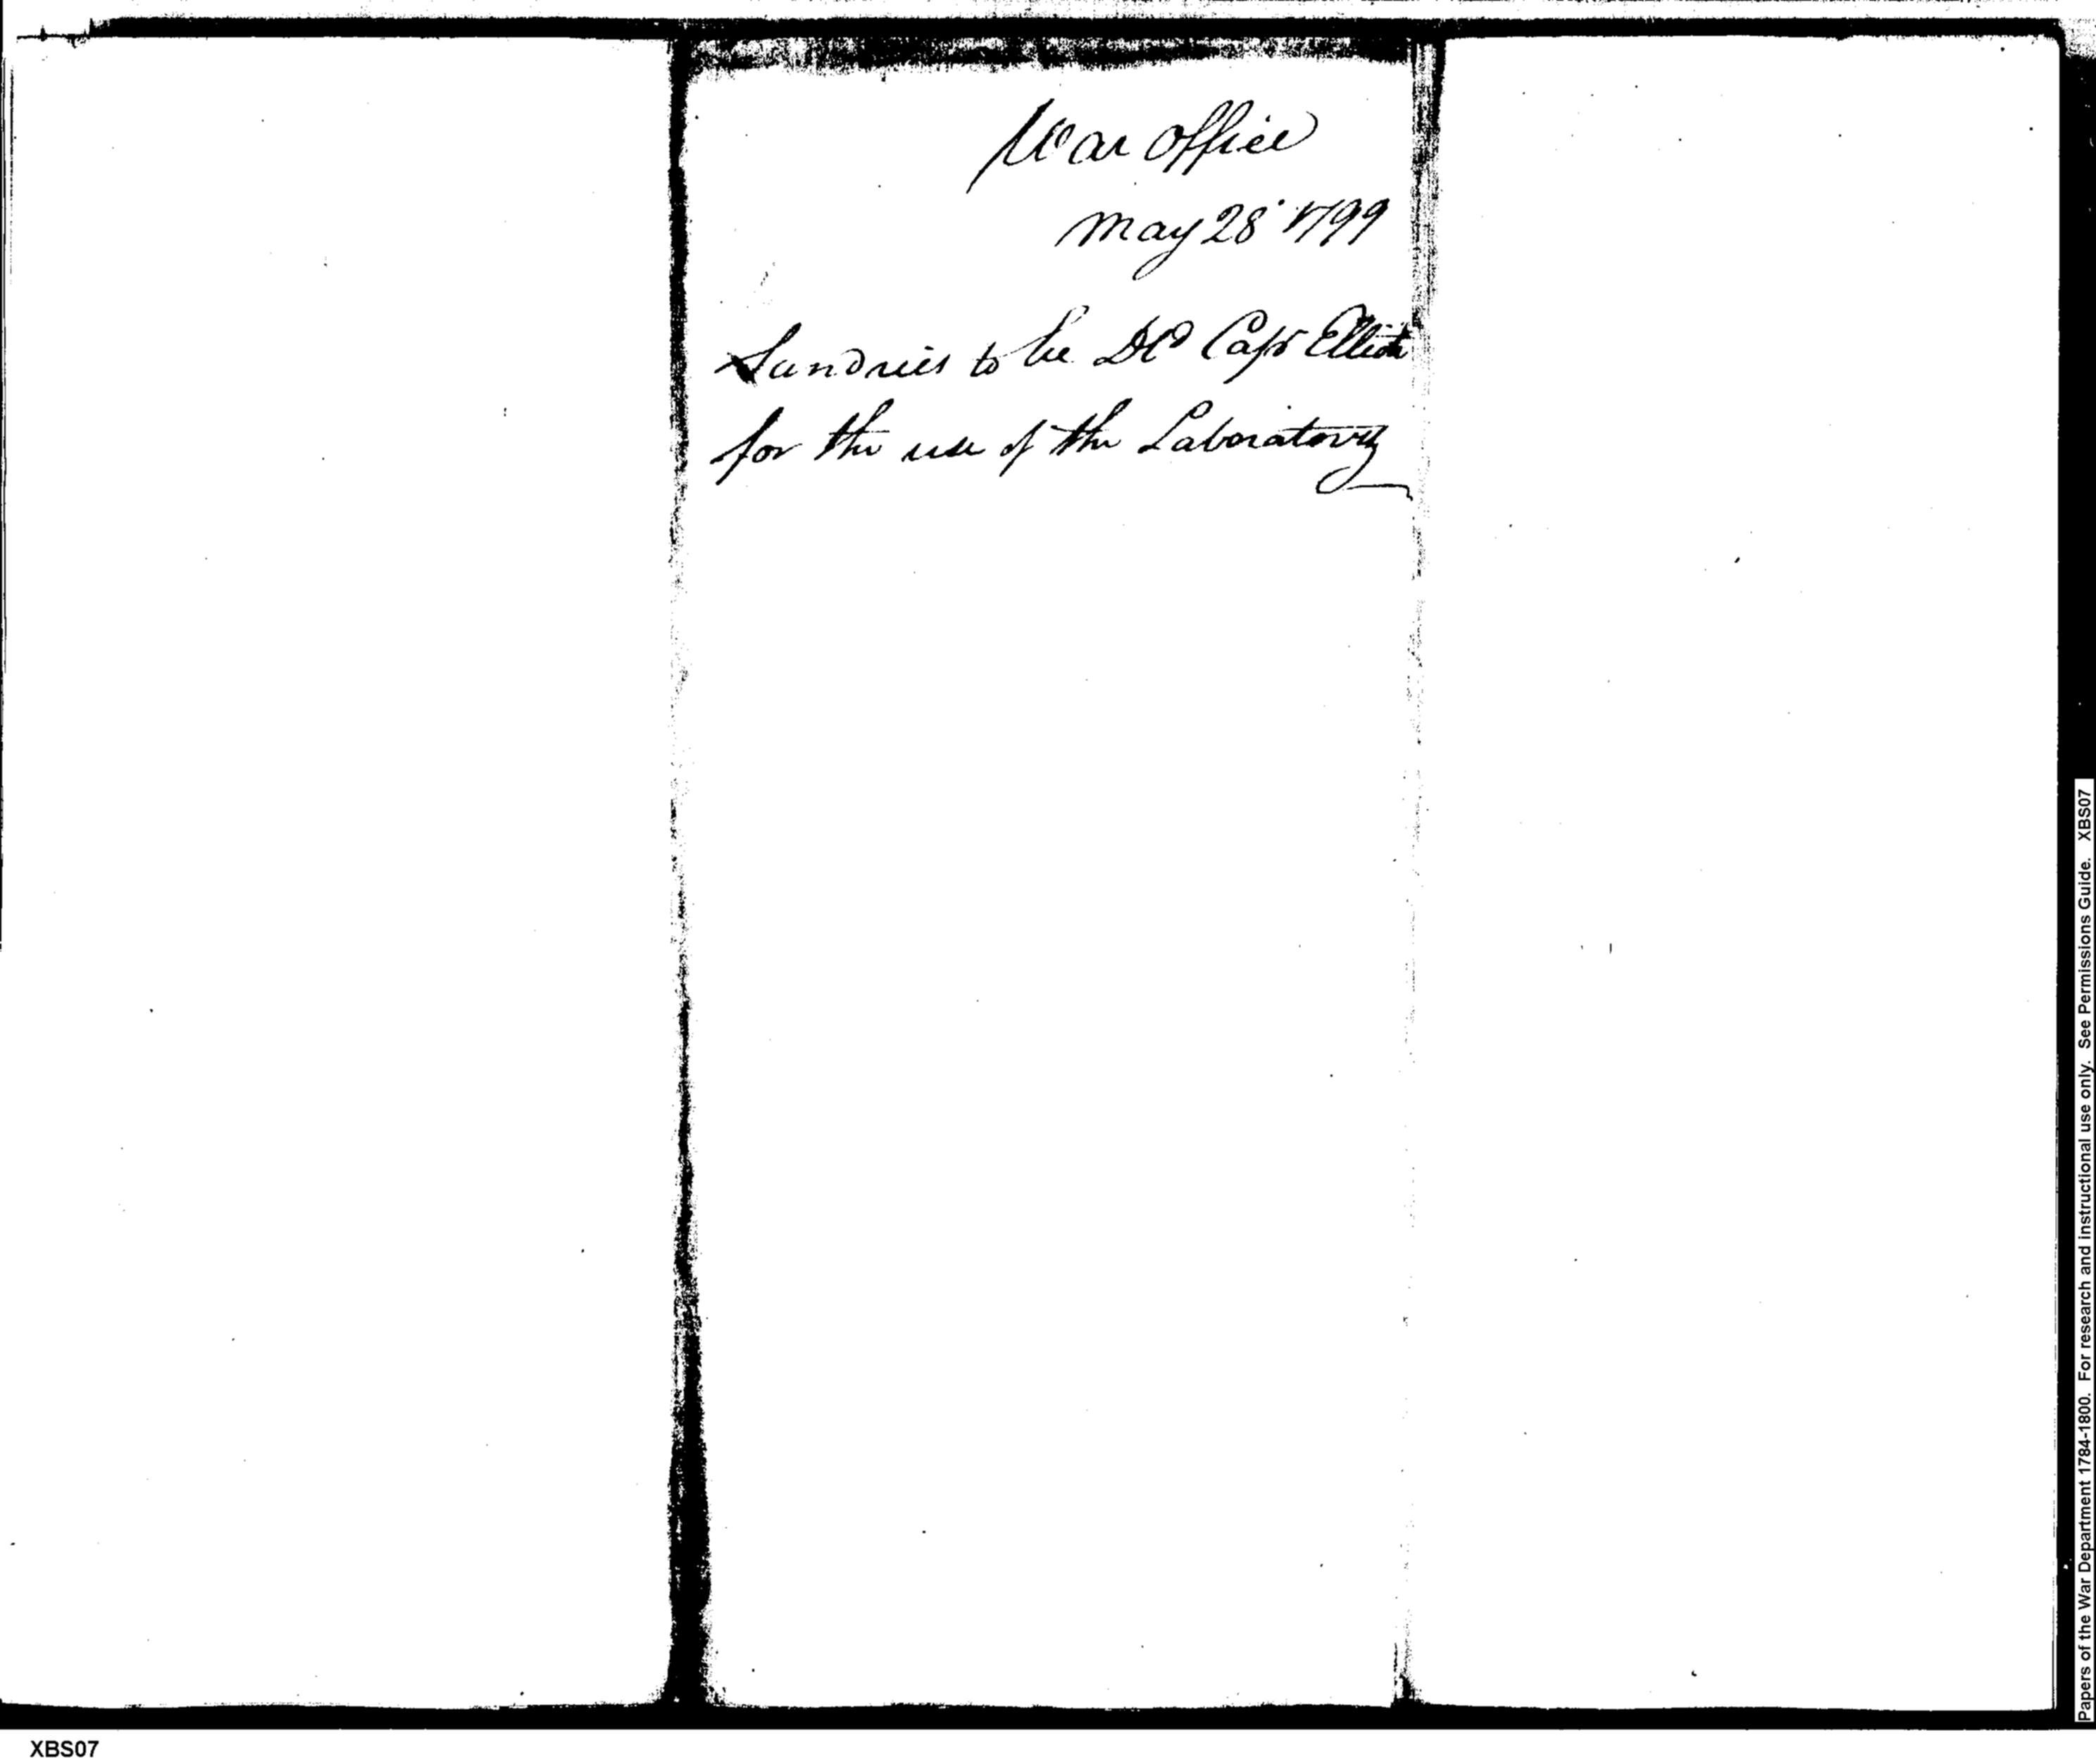 War Office
May 28 1799
Sundries to be Dld Capt Elliot
for the use of the Laboratory
Papers of the War Department 1784-1800. For research and instructional use only. See Permissions Guide. XBS07
XBS07